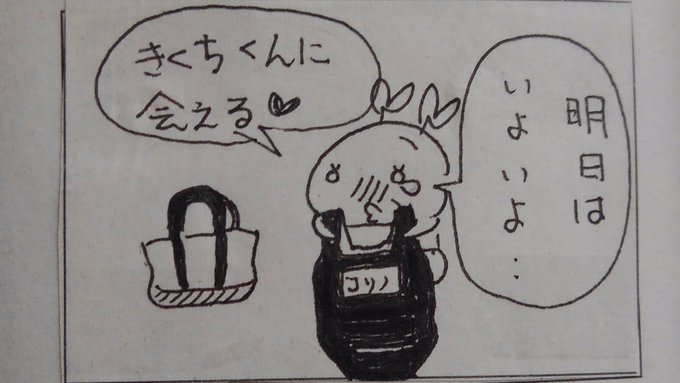 明日は
いよいよ‥
きくちくんに
会える♥
コリノ